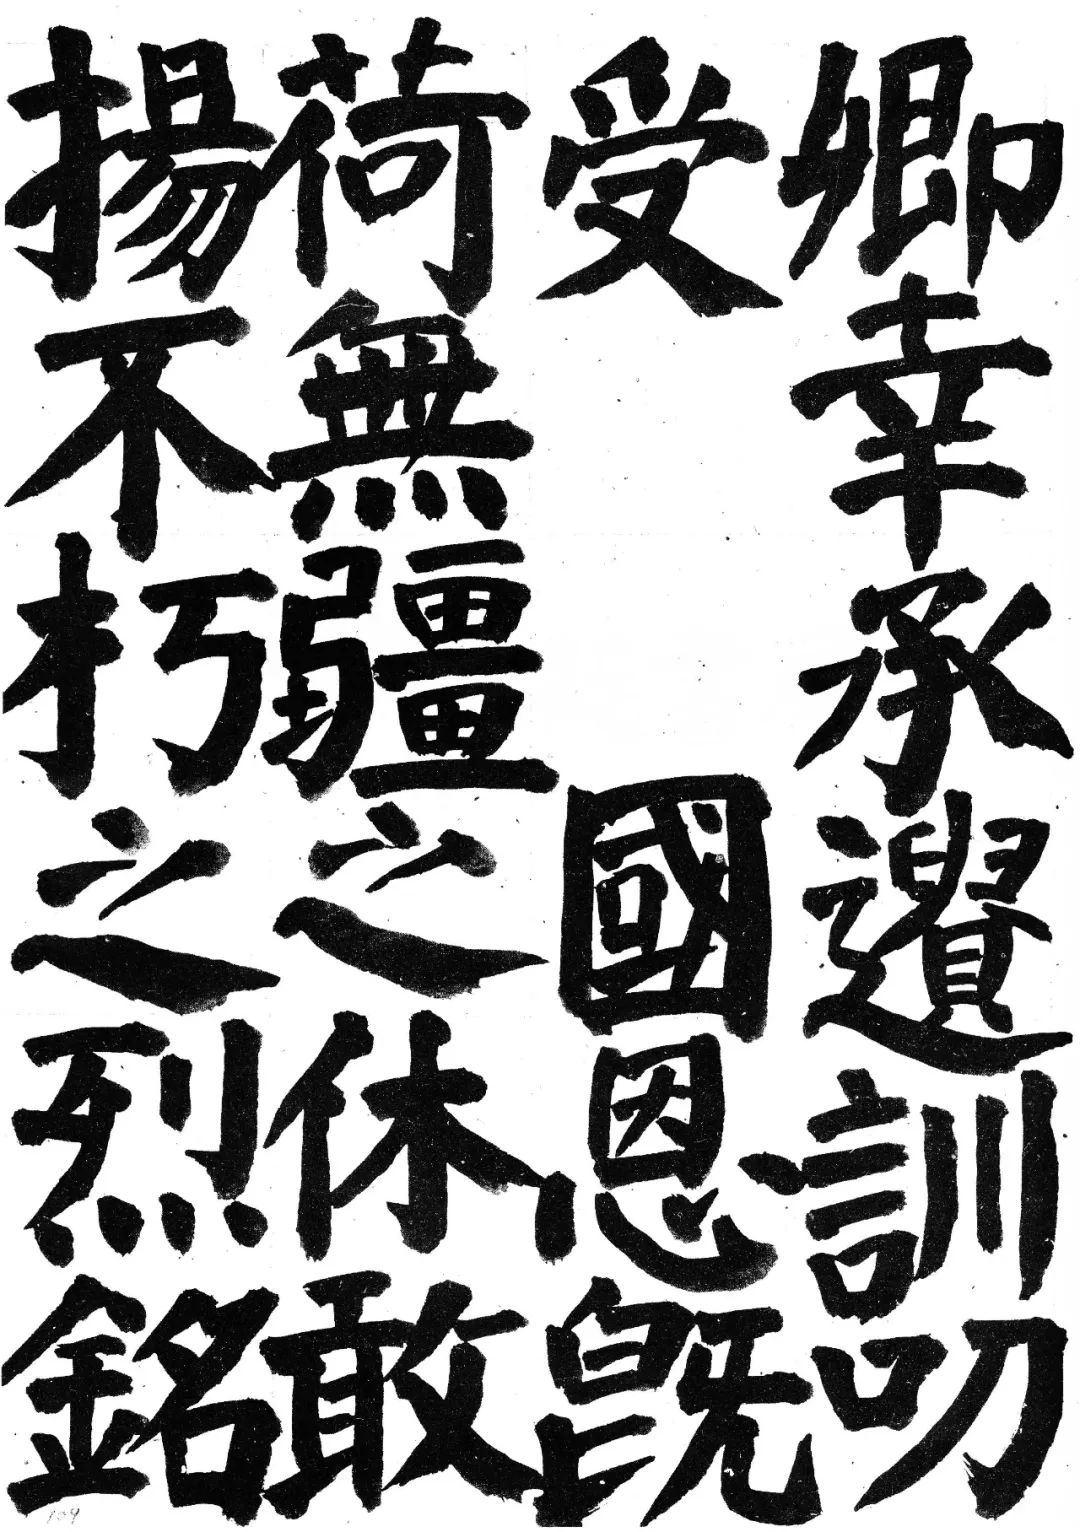 卿幸承遺訓叨
受國恩既
荷無疆之休敢
揚不朽之烈銘
109